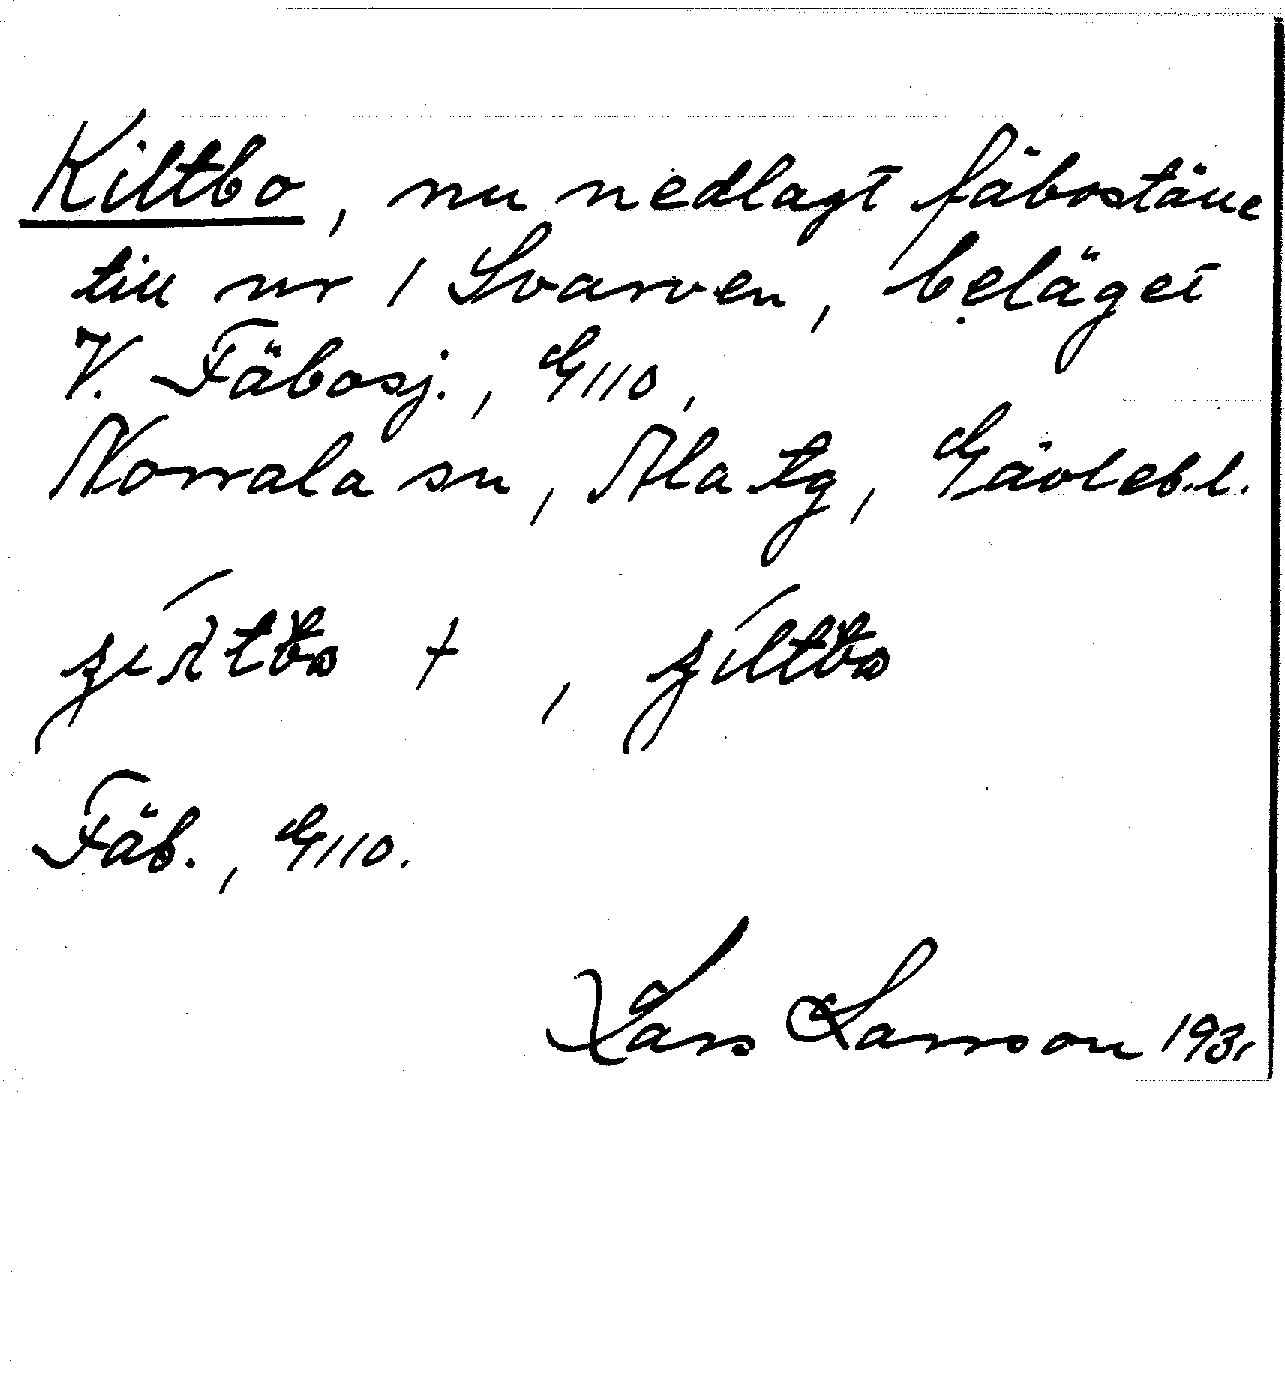 Kiltbo, nu nedlagt fäboställe
till nr 1 Svarven, beläget
V. Fäbosj., G110,
Norrala sn, Ala tg, Gävleb.l.
+ ,
Fäb., G110.
Lars Larsson 1931